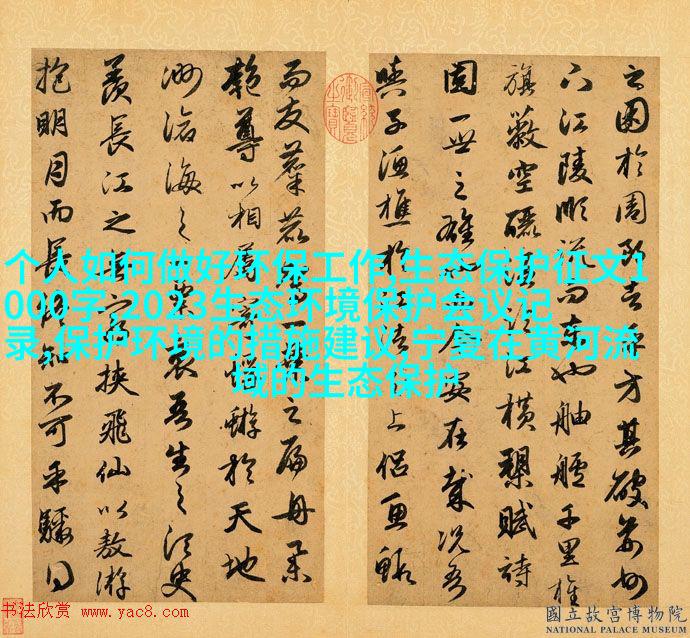 之困於周郎者乎方其破荊州
下江陵順流而東也舳艫千里旌
旗蔽空釃酒臨江橫槊賦詩
固一世之雄也而今安在哉況吾
與子漁樵於江渚之上侶魚鰕
而友麋鹿駕一葉之扁舟舉
匏尊以相屬寄蜉蝣於天地
渺滄海之一粟哀吾生之須臾
羨長江之無窮挾飛仙以遨游
抱明月而長終知不可乎驟得
个人如何做好环保工作,生态保护征文1
000字,2023生态环境保护会议记
录,保护环境的措施建议,宁夏在黄河流
域的生态保护
书法欣赏 www.yac8.com
國立故宮博物院
NATIONAL PALACE MUSEUM